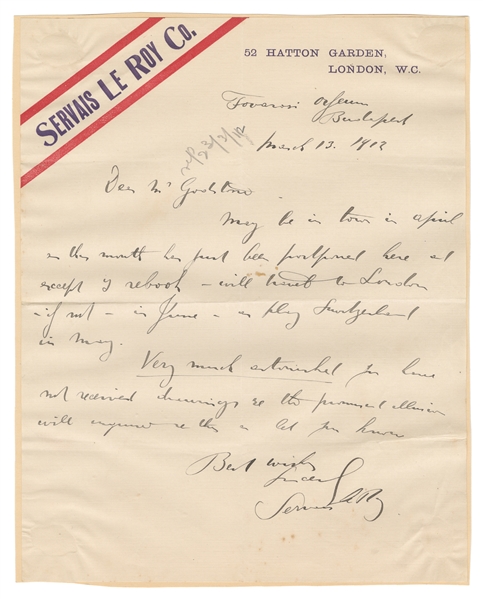 SERVAIS LE ROY CO.
52 HATTON GARDEN,
LONDON, W.C.
Fovarosi Orfeum
Budapest
March 13. 1912
23/3/12
Dear Mr Goldston
May be in town in April
as this month has just been postponed here and
except I rebook - will travel to London
- if not - in June - as play Switzerland
in May.
Very much astonished you have
not received drawings re the promised illusion
will enquire re this & let you know
Best wishes
Sincerely
Servais Le Roy